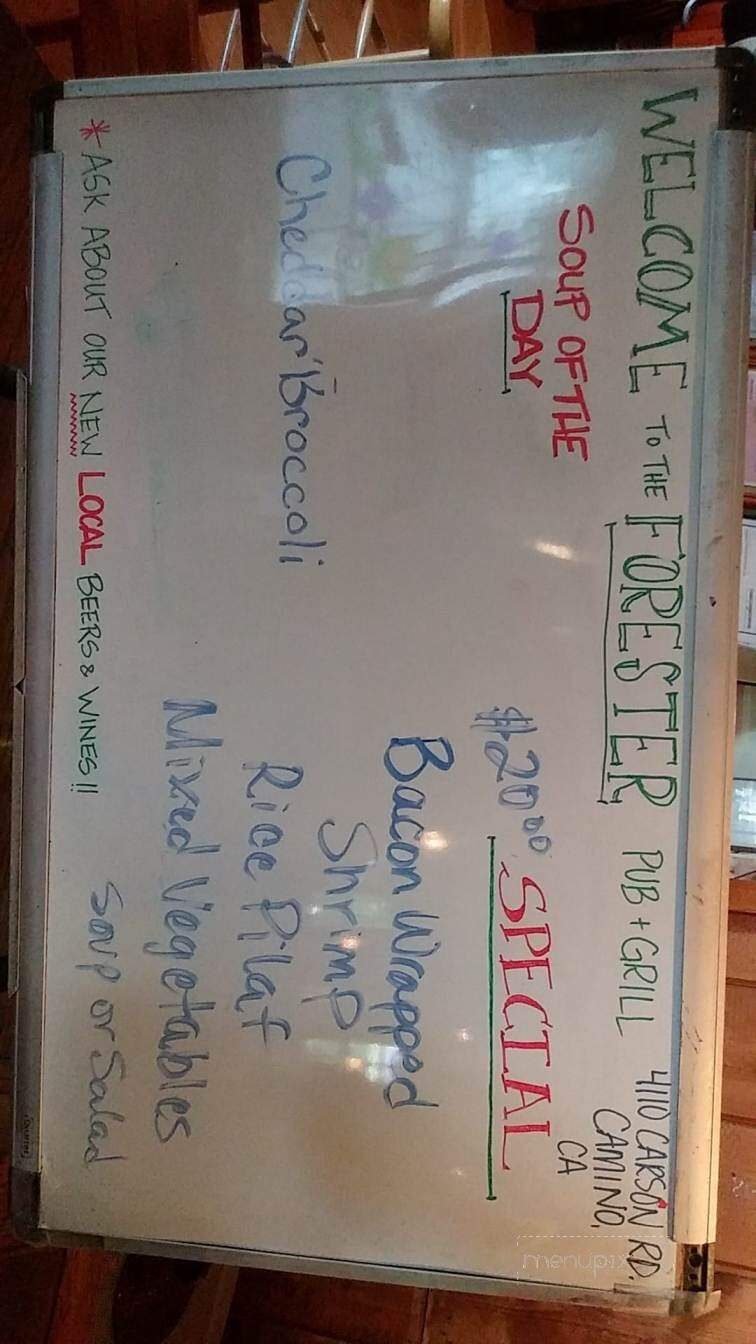 WELCOME TO THE FORESTER PUB + GRILL
4110 CARSON RD.
CAMINO,
CA
SOUP OF THE
DAY
Cheddar Broccoli
$20⁰⁰ SPECIAL
Bacon Wrapped
Shrimp
Rice Pilaf
Mixed Vegetables
Soup or Salad
* ASK ABOUT OUR NEW LOCAL BEERS & WINES!!
menupix